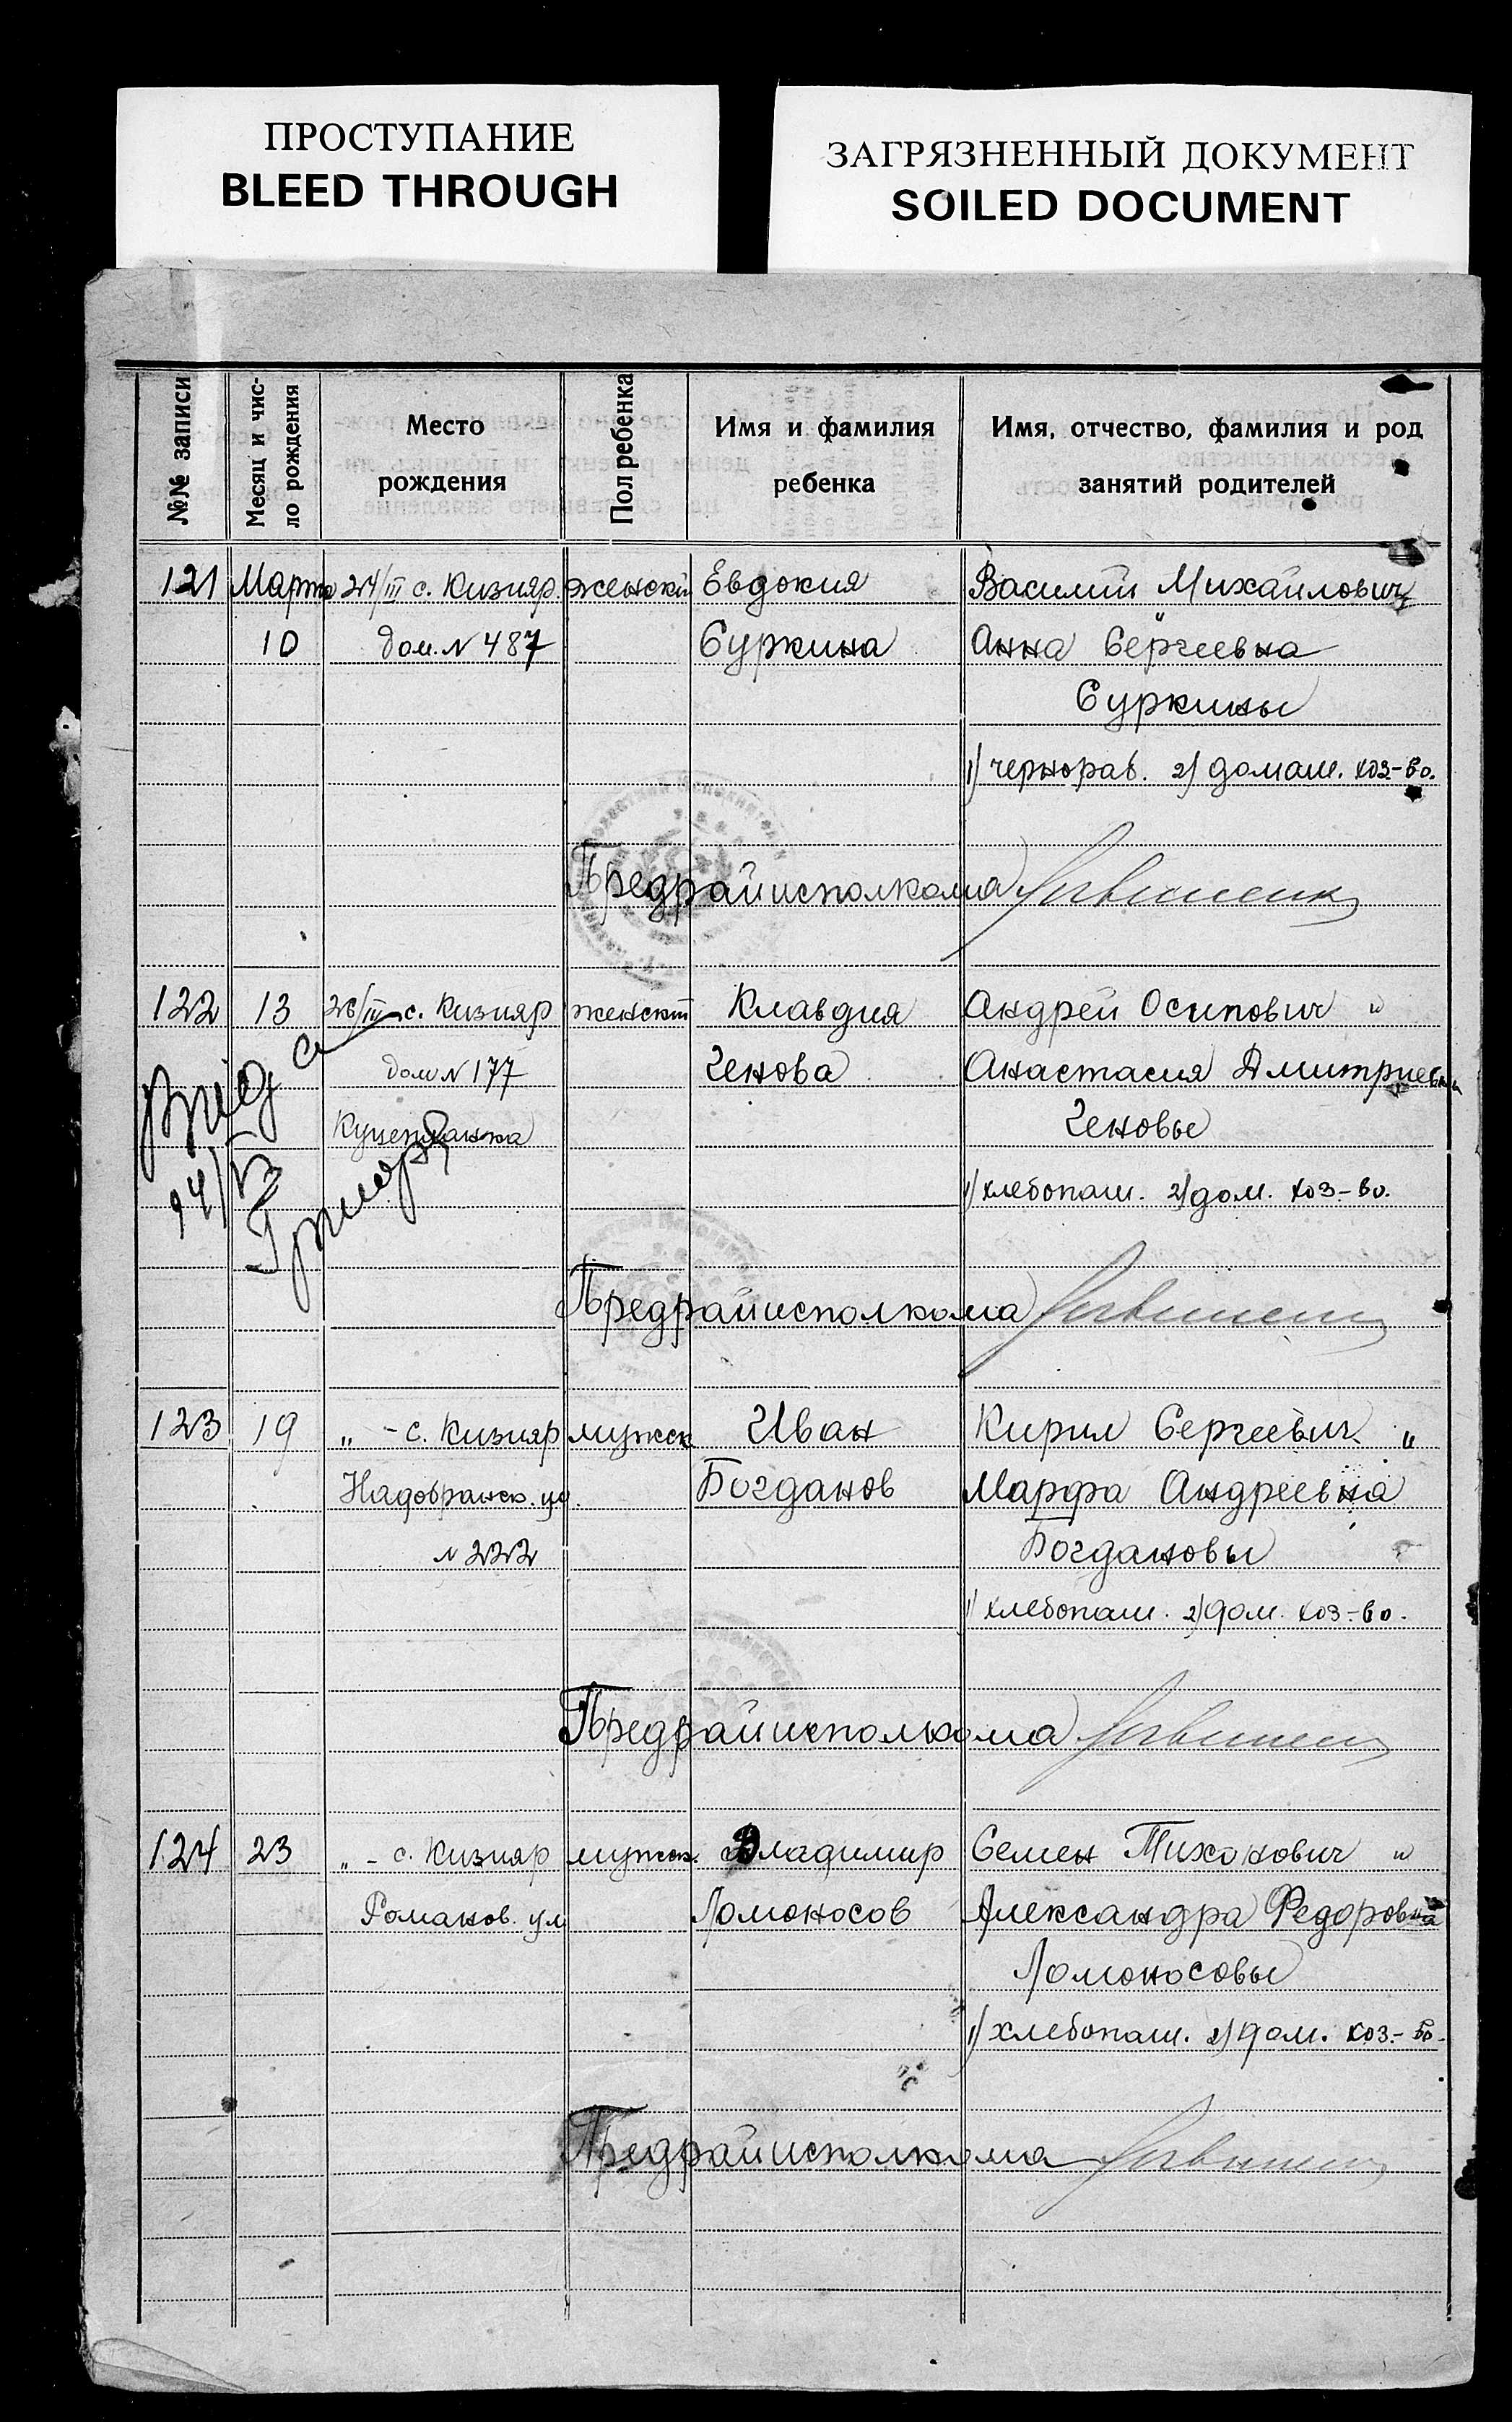 ПРОСТУПАНИЕ
BLEED THROUGH
ЗАГРЯЗНЕННЫЙ ДОКУМЕНТ
SOILED DOCUMENT
№№ записи
Месяц и чис-
ло рождения
Место
рождения
Пол ребенка
Имя и фамилия
ребенка
Имя, отчество, фамилия и род
занятий родителей
121 Марта 24/III с. Кизияр. женский Евдокия Василий Михайлович
10 дом. N 487 Суркина Анна Сергеевна
Суркины
1) чернораб. 2) домаш. хоз-во.
Предрайисполкома
122 13 26/III с. Кизияр женский Клавдия Андрей Осипович и
дом N 177 Ченова Анастасия Дмитриевна
Ченовы
1) хлебопаш. 2) дом. хоз-во.
Предрайисполкома
123 19 „ - с. Кизияр мужск Иван Кирил Сергеевич "
ул. Богданов Марфа Андреевна
N 222 Богдановы
1) хлебопаш. 2) дом. хоз-во.
Предрайисполкома
124 23 „ - с. Кизияр мужск. Владимир Семен Тихонович и
Романов. ул Ломоносов Александра Федоровна
Ломоносовы
1) хлебопаш. 2) дом. хоз-во.
Предрайисполкома